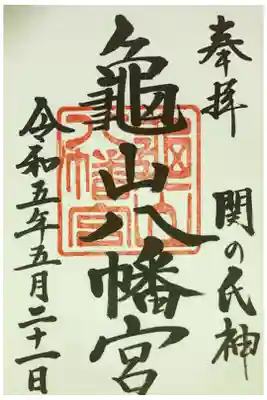 奉拝
関の氏神
龜山八幡宮
令和五年五月二十一日